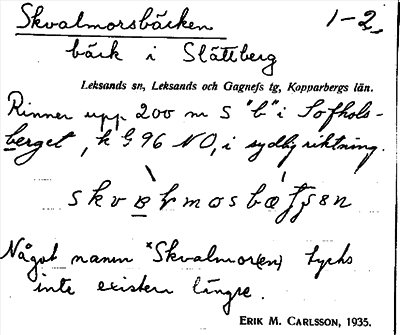 Skvalmorsbäcken 1-2.
bäck i Slättberg
Leksands sn, Leksands och Gagnefs tg, Kopparbergs län.
Rinner upp 200 m S "b" i Sofhols-
berget, k G 96 NO, i sydlig riktning.
Något namn *Skvalmor(en) tycks
inte existera längre.
ERIK M. CARLSSON, 1935.